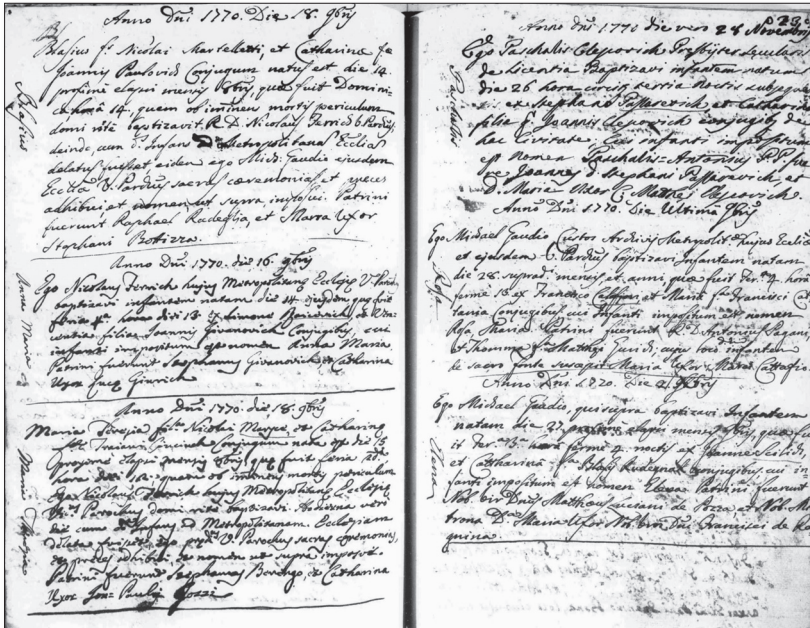 Anno Dni 1770. Die 18. 9bris
Blasius
Blasius fs. Nicolai Martelletti, et Catharinæ fæ
Joannis Pavlovich Conjugum natus est die 14
quæ fuit Domini-
ca hora 14. quem ob imminens mortis periculum
domi rite baptizavit R. D. Nicolaus Ferrich V. Parochus,
deinde, cum ds. Infans ad Metropolitanam Ecclesiam
delatus fuisset eidem ego Michl. Gaudio ejusdem
Ecclæ V. Parochus sacras cæremonias, et preces
adhibui, et nomen, ut supra, imposui. Patrini
fuerunt Raphael Radeglia, et Marra Uxor
Stephani Bottizza.
Anno Dni 1770. die 16. 9bris
Anna Maria
Ego Nicolaus Ferrich hujus Metropolitanæ Ecclesiæ V. Par
baptizavi infantem natam die 14 ejusdem quæ fuit
hora diei 17 ex Simone et Vin-
centia filia Joannis Givanovich Conjugibus, cui
infanti impositum est nomen Anna Maria
Patrini fuerunt Stephanus Givanovich, et Catharina
Uxor Giurich
Anno Dni 1770. die 18. 9bris
Maria Theresia
Maria Teresia Nicolai et Catharina
Conjugum nata est die 15
elapsi mensis 9bris, quæ fuit
hora diei 12. quam ob imminens mortis periculum
Ego Nicolaus Ferrich hujus Metropolitanæ Ecclesiæ
V. Parochus domi rite baptizavi. Hodierna vero
die cum infans ad Metropolitanam Ecclesiam
delata fuisset, ego V. Parochus sacras ceremonias,
et preces adhibui, et nomen ut supra imposui.
Patrini fuerunt Stephanus Berengo, et Catharina
Uxor Pauli Gozzi
23
Anno Dni 1770 die vero 28 Novembris
Paschalis
Ego Paschalis Clepovich Presbyter secularis
de licentia Baptizavi infantem natum
die 26 hora circiter tertia noctis
ex Stephano Tasserevich et Catharina
filia q. Joannis Clepovich conjugibus de
hac Civitate. Cui infanti impositum
est nomen Paschalis-Antonius. P. P. fue-
re Joannes q. Stephani Tasserevich, et
D. Maria Uxor D. Matthei Clepovich
Anno Dni 1770. Die Ultima 9bris
Rosa
Ego Michael Gaudio Custos Archivii Metropolit. hujus Ecclæ
et ejusdem V. Parochus baptizavi Infantem natam
die 28 supradi mensis, et anni, quæ fuit Fer. 4 hora
ferme 18 ex Francisco et Maria Francisci
Conjugibus cui Infanti impositum est nomen
Rosa Maria. Patrini fuerunt Rs. D. Antonius Pagani
et Thomma Matthei Guidi; cujus vice infantem
de sacro fonte suscepit Maria Uxor Marci Cattaffio.
Anno Dni 1770. Die 2. Xbris
Elena
Ego Michael Gaudio, qui supra baptizavi Infantem
natam die 27 elapsi mensis 9bris, quæ fu-
it Fer. 3a hora ferme 4 noctis ex Joanne
et Catharina conjugibus, cui in-
fanti impositum est nomen Elena. Patrini fuerunt
Nob. Vir Dnus Mattheus Luciani de Pozza et Nob. Ma-
trona Da. Maria Uxor Nob. Viri Dni Francisci de Ra-
gnina.